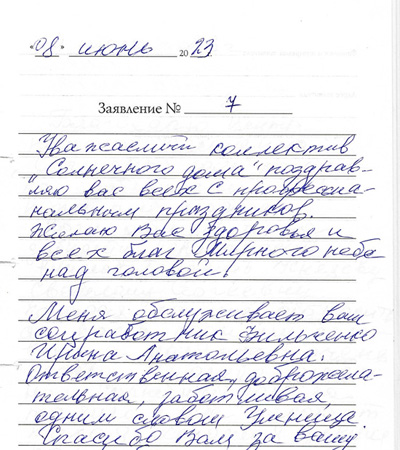 «08» июнь 2023
Заявление № 7
Уважаемый коллектив
„Солнечного дома" поздрав-
ляю вас всех с професси-
нальным праздником.
Желаю Вас здоровья и
всех благ Мирного неба
над головой!
Меня обслуживает ваш
соцработник
Ирина Анатольевна.
Ответственная, доброжела-
тельная, заботливая,
одним словом Умница.
Спасибо Вам за вашу